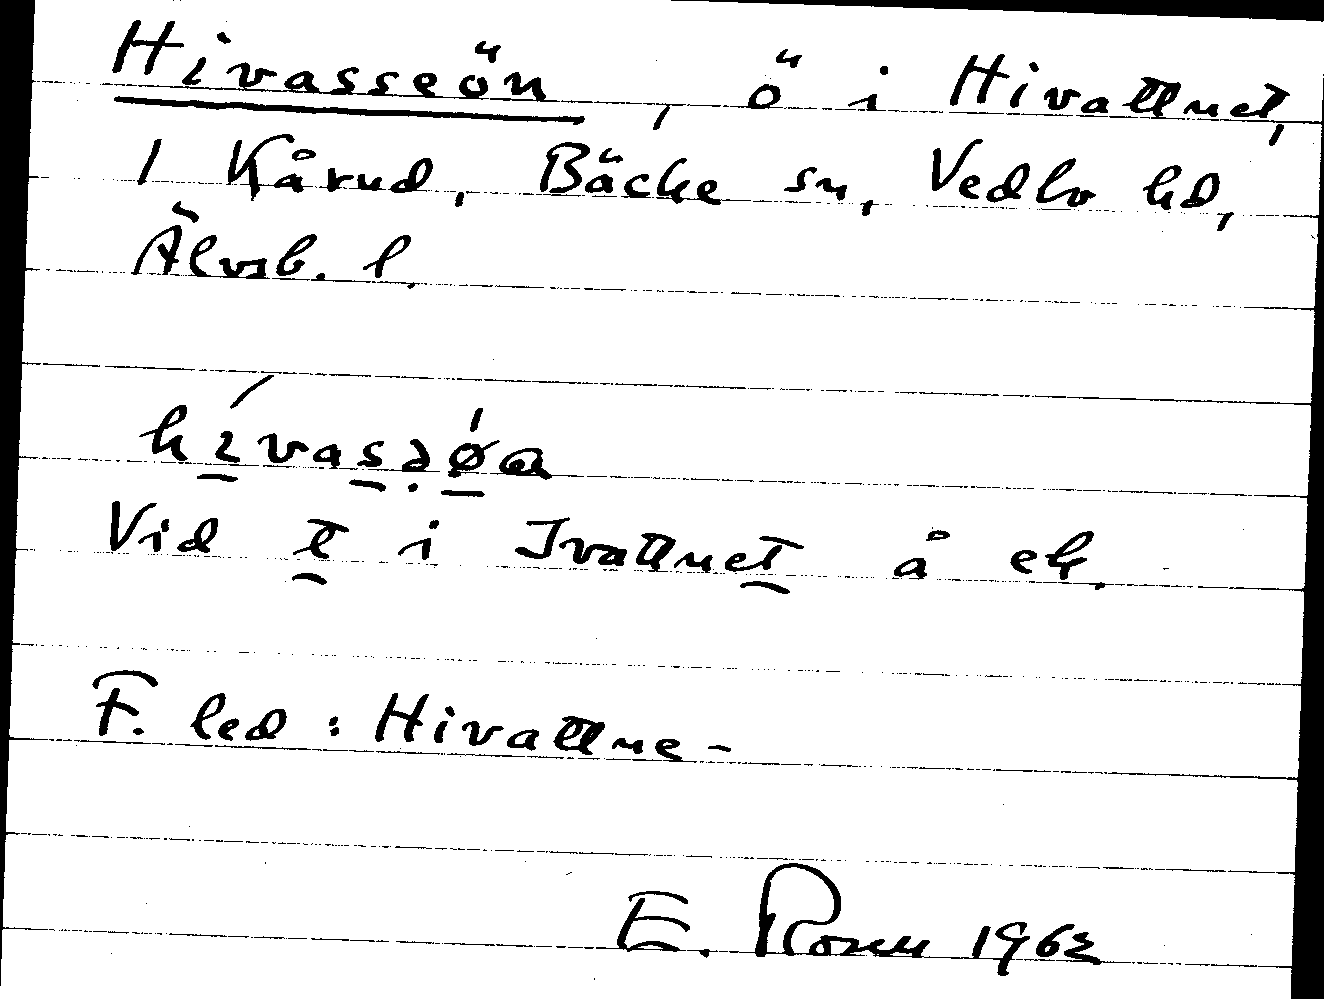 Hivasseön, ö i Hivattnet,
1 Kårud, Bäcke sn, Vedbo hd,
Älvsb. l.
hívasəøa
Vid t i Ivattnet å ek.
F. led: Hivattne-
E. Rosell 1962